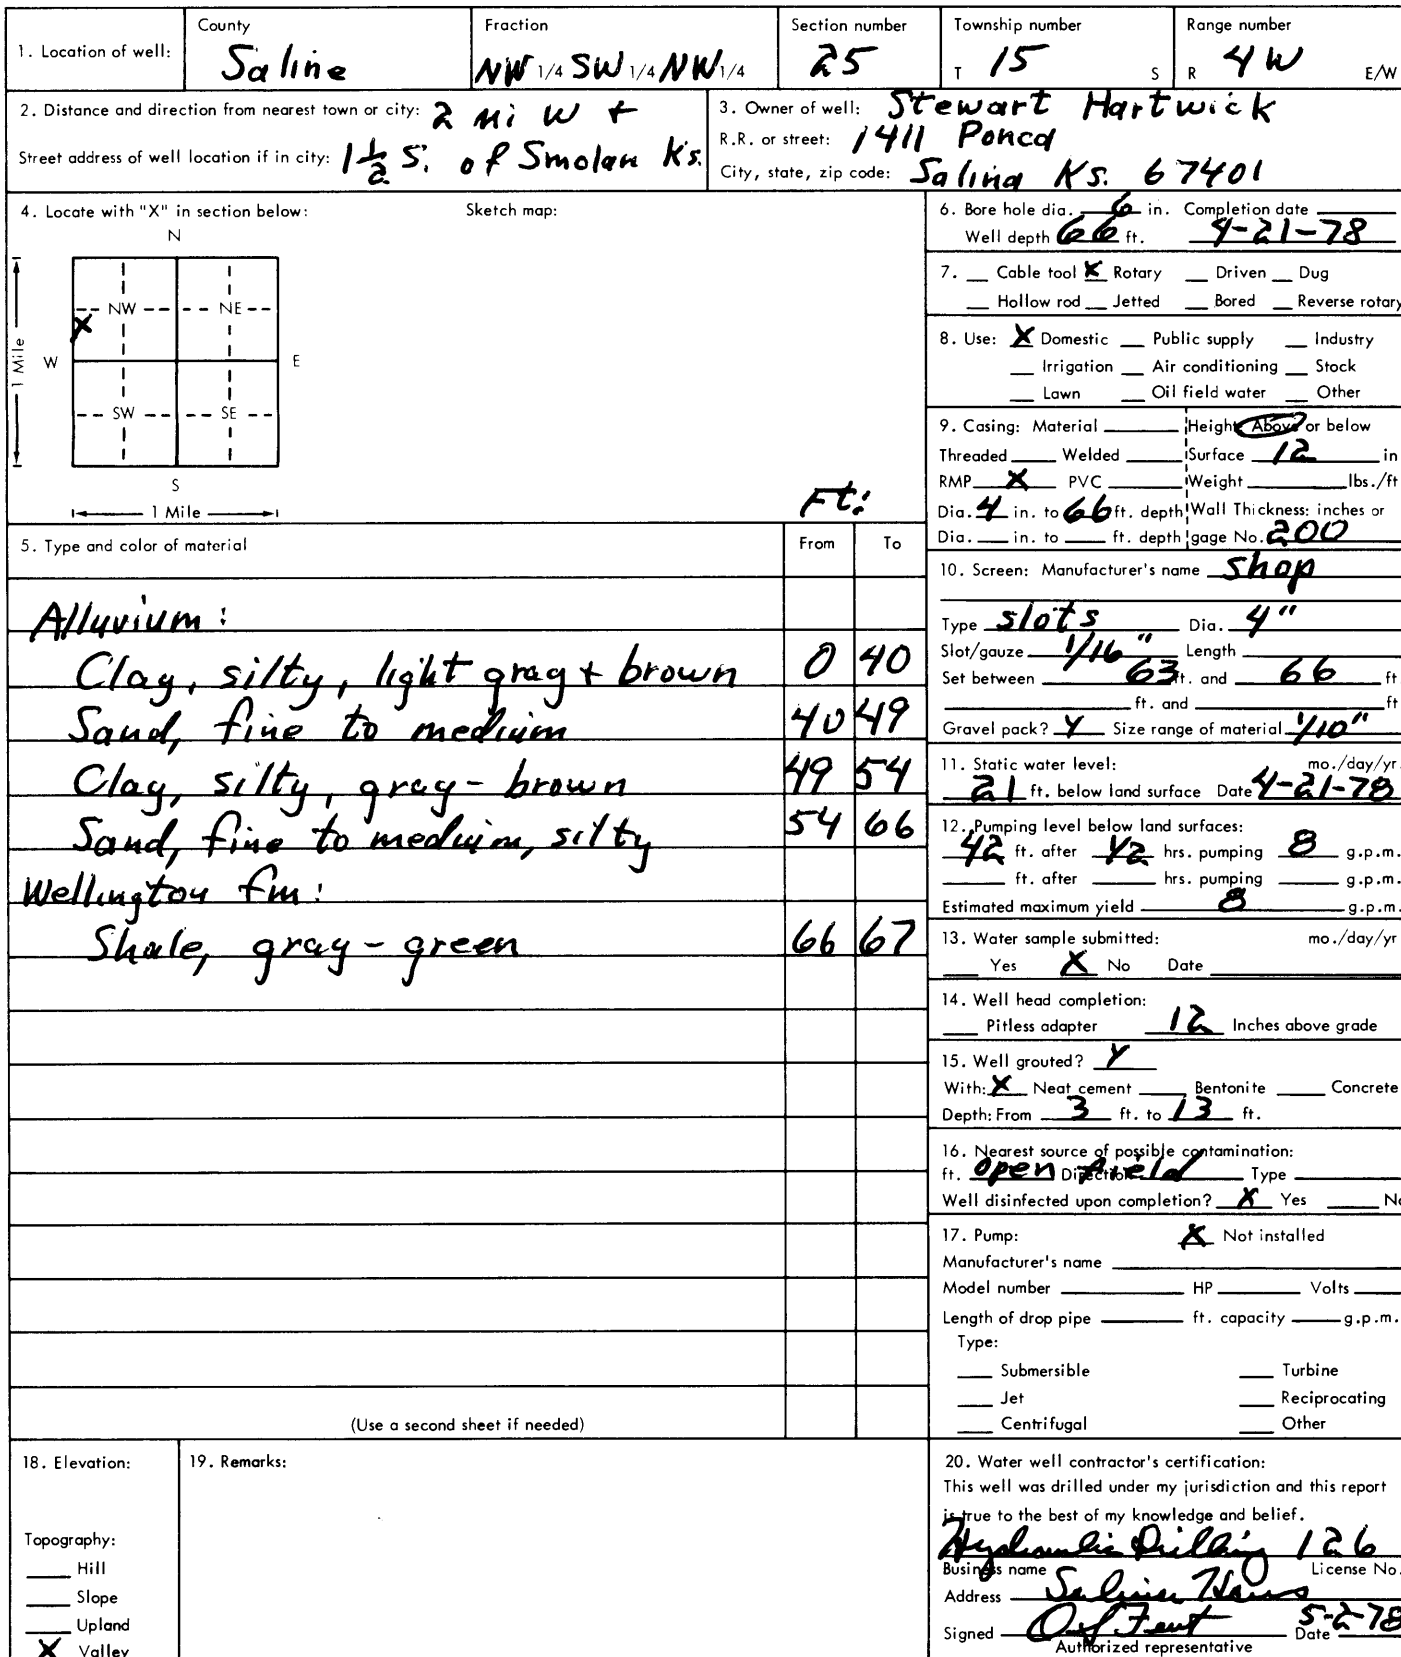 1. Location of well:
County
Saline
Fraction
NW 1/4 SW 1/4 NW 1/4
Section number
25
Township number
T 15 S
Range number
R 4 W E/W
2. Distance and direction from nearest town or city: 2 mi W +
Street address of well location if in city: 1 1/2 S. of Smolan Ks.
3. Owner of well: Stewart Hartwick
R.R. or street: 1411 Ponca
City, state, zip code: Salina Ks. 67401
4. Locate with "X" in section below:
Sketch map:
N
NW NE
X
W E
1 Mile
SW SE
S
1 Mile
Ft:
5. Type and color of material From To
Alluvium:
Clay, silty, light gray + brown 0 40
Sand, fine to medium 40 49
Clay, silty, gray-brown 49 54
Sand, fine to medium, silty 54 66
Wellington fm:
Shale, gray-green 66 67
(Use a second sheet if needed)
6. Bore hole dia. 6 in. Completion date
Well depth 66 ft. 4-21-78
7. __ Cable tool X Rotary __ Driven __ Dug
__ Hollow rod __ Jetted __ Bored __ Reverse rotary
8. Use: X Domestic __ Public supply __ Industry
__ Irrigation __ Air conditioning __ Stock
__ Lawn __ Oil field water __ Other
9. Casing: Material ____ Height: Above or below
Threaded ____ Welded ____ Surface 12 in
RMP X PVC ____ Weight ____ lbs./ft
Dia. 4 in. to 66 ft. depth Wall Thickness: inches or
Dia. ____ in. to ____ ft. depth gage No. 200
10. Screen: Manufacturer's name Shop
Type slots Dia. 4"
Slot/gauze 1/16" Length ____
Set between 63 ft. and 66 ft.
____ ft. and ____ ft
Gravel pack? Y Size range of material 1/10"
11. Static water level: mo./day/yr.
21 ft. below land surface Date 4-21-78
12. Pumping level below land surfaces:
42 ft. after 1/2 hrs. pumping 8 g.p.m.
____ ft. after ____ hrs. pumping ____ g.p.m.
Estimated maximum yield 8 g.p.m.
13. Water sample submitted: mo./day/yr
____ Yes X No Date ____
14. Well head completion:
____ Pitless adapter 12 Inches above grade
15. Well grouted? Y
With: X Neat cement ____ Bentonite ____ Concrete
Depth: From 3 ft. to 13 ft.
16. Nearest source of possible contamination:
ft. open Direction field Type ____
Well disinfected upon completion? X Yes ____ No
17. Pump: X Not installed
Manufacturer's name ____
Model number ____ HP ____ Volts ____
Length of drop pipe ____ ft. capacity ____ g.p.m.
Type:
____ Submersible ____ Turbine
____ Jet ____ Reciprocating
____ Centrifugal ____ Other
18. Elevation:
Topography:
____ Hill
____ Slope
____ Upland
X Valley
19. Remarks:
20. Water well contractor's certification:
This well was drilled under my jurisdiction and this report
is true to the best of my knowledge and belief.
Hydraulic Drilling 126
Business name License No.
Address Salina Kans
Signed Date 5-2-78
Authorized representative